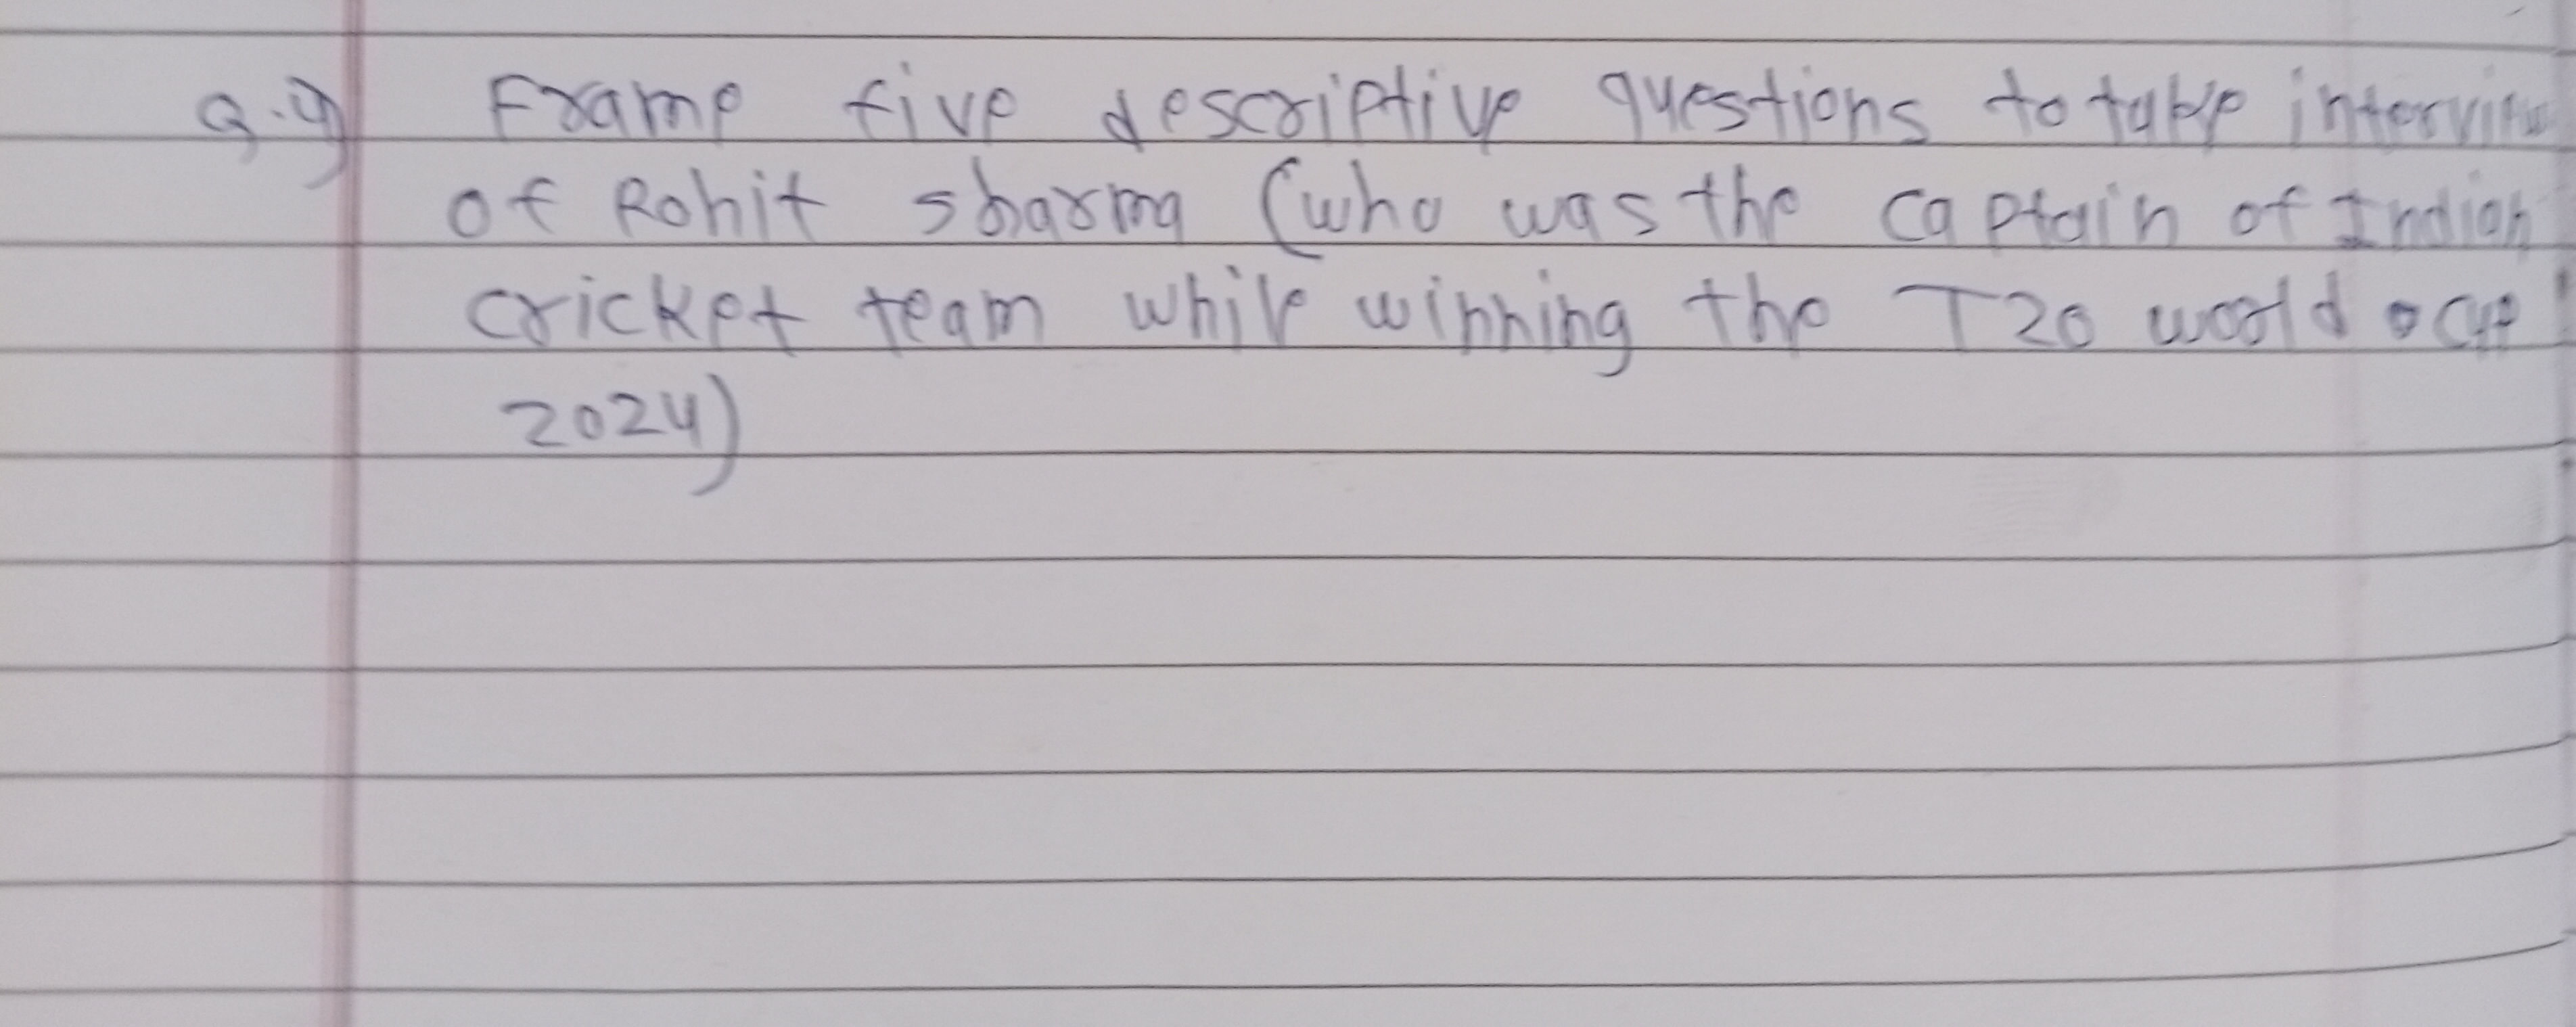 Q.4) Frame five descriptive questions to take interview
of Rohit sharma (who was the captain of Indian
cricket team while winning the T20 world cup
2024)